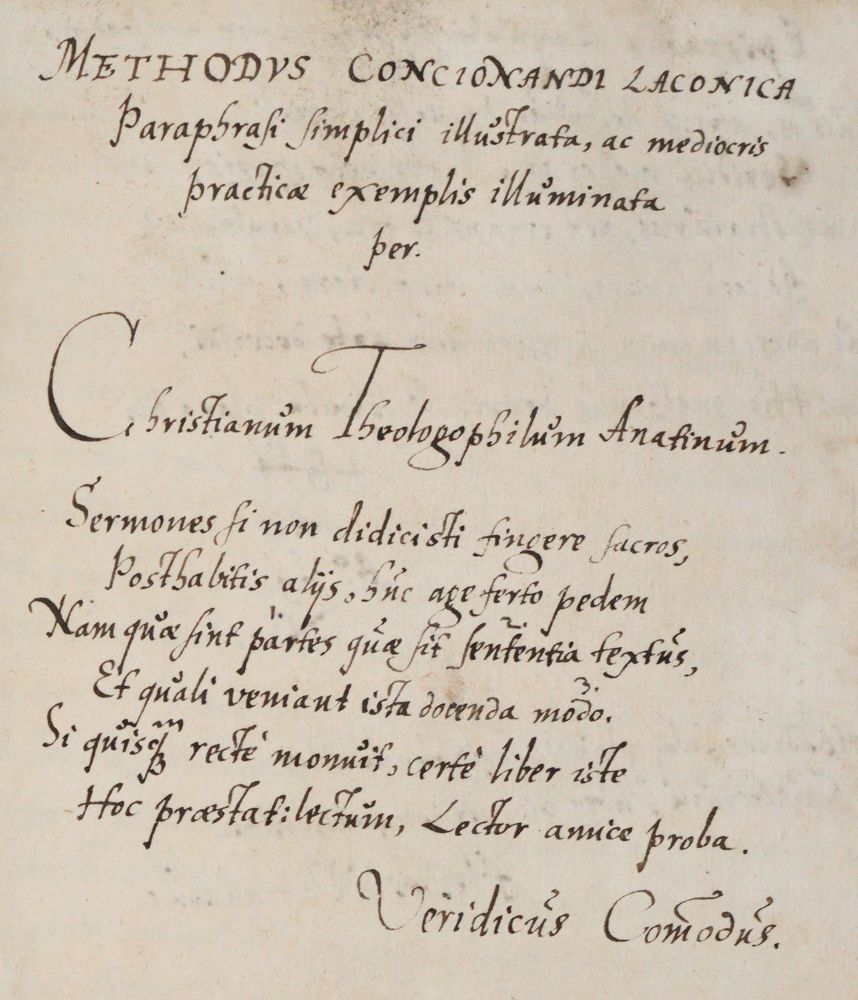 METHODVS CONCIONANDI LACONICA
Paraphrasi simplici illustrata, ac mediocris
practicæ exemplis illuminata
per.
Christianum Theologophilum Anatinum.
Sermones si non didicisti fingere sacros,
Posthabitis alijs, hûc age ferto pedem
Nam quæ sint partes quæ sit sententia textus,
Et quali veniant ista docenda modo.
Si quisqꝫ rectè monuit, certè liber iste
Hoc præstat: lectum, Lector amice proba.
Veridicus Com̃odus.